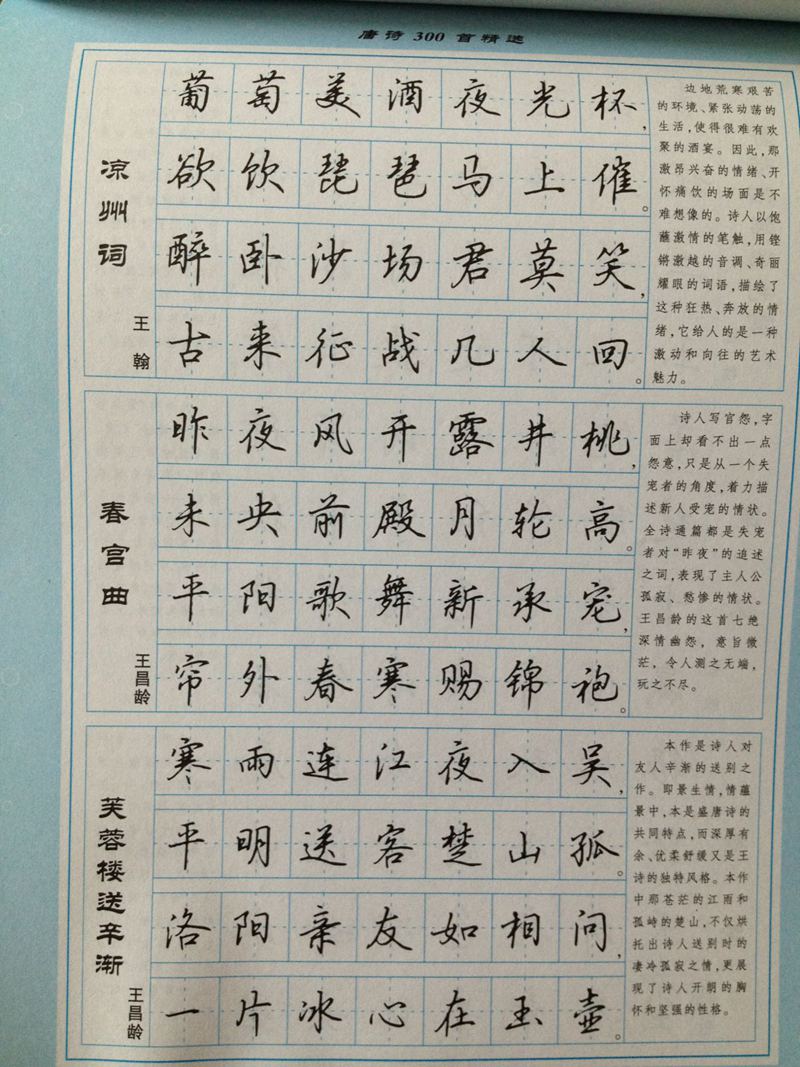 唐诗 300 首精选
凉州词
王翰
葡萄美酒夜光杯，
欲饮琵琶马上催。
醉卧沙场君莫笑，
古来征战几人回。
边地荒寒艰苦
的环境、紧张动荡的
生活，使得很难有欢
聚的酒宴。因此，那
激昂兴奋的情绪、开
怀痛饮的场面是不
难想像的。诗人以饱
蘸激情的笔触，用铿
锵激越的音调、奇丽
耀眼的词语，描绘了
这种狂热、奔放的情
绪，它给人的是一种
激动和向往的艺术
魅力。
春宫曲
王昌龄
昨夜风开露井桃，
未央前殿月轮高。
平阳歌舞新承宠，
帘外春寒赐锦袍。
诗人写宫怨，字
面上却看不出一点
怨意，只是从一个失
宠者的角度，着力描
述新人受宠的情状。
全诗通篇都是失宠
者对“昨夜”的追述
之词，表现了主人公
孤寂、愁惨的情状。
王昌龄的这首七绝
深情幽怨，意旨微
茫，令人测之无端，
玩之不尽。
芙蓉楼送辛渐
王昌龄
寒雨连江夜入吴，
平明送客楚山孤。
洛阳亲友如相问，
一片冰心在玉壶。
本作是诗人对
友人辛渐的送别之
作。即景生情，情蕴
景中，本是盛唐诗的
共同特点，而深厚有
余、优柔舒缓又是王
诗的独特风格。本作
中那苍茫的江雨和
孤峙的楚山，不仅烘
托出诗人送别时的
凄冷孤寂之情，更展
现了诗人开朗的胸
怀和坚强的性格。